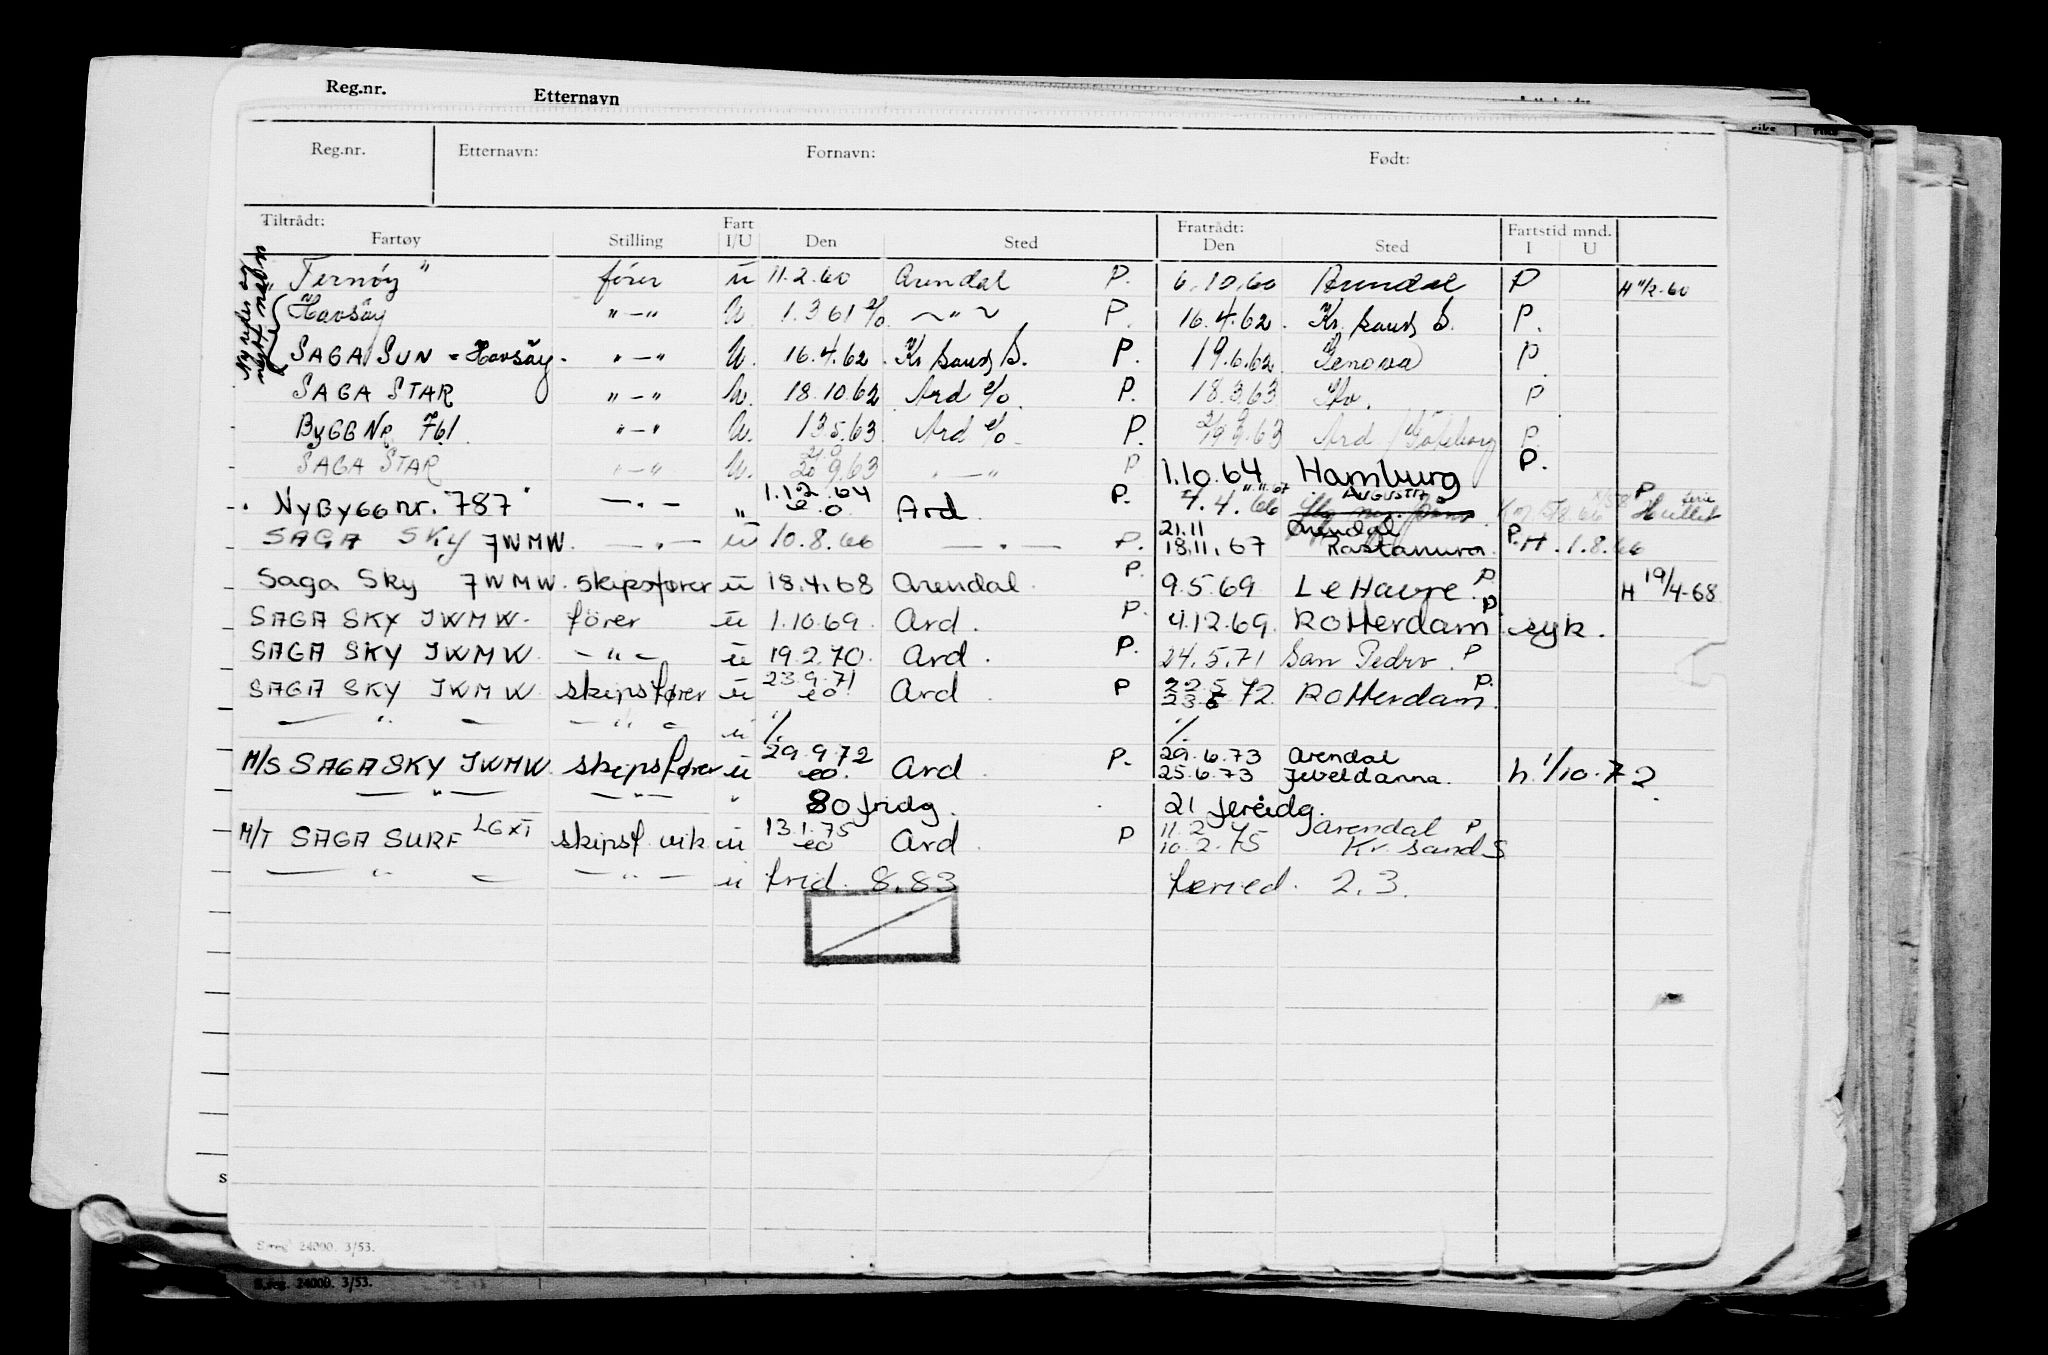 Reg.nr. Etternavn
Reg.nr. Etternavn: Fornavn: Født:
Tiltrådt: Fratrådt: Fartstid mnd.
Fartøy Stilling Fart I/U Den Sted Den Sted I U
Ny reder og nytt navn
"Ternöy" förer u 11.2.60 Arendal P. 6.10.60 Arendal P H 11/2-60
Havsöy "-" U. 1.3 61 e/o ~"~ P. 16.4.62. Kr. sand S. P.
SAGA SUN = Havsöy. "-" U. 16.4.62. Kr sand S. P. 19.6.62 Genova P
SAGA STAR "-" U. 18.10.62 Ard e/o P. 18.3.63 P
BYGG No 761. "-" U. 13.5.63 Ard e/o. P. 63 Ard / Göteborg P.
SAGA STAR "-" U. 20 9.63 "-" P 1.10.64 Hamburg P.
"Nybygg nr. 787" -"- " 1.12.64 e.o Ard. P. 4.4.66 11.11.67 AUGUSTA P
SAGA SKY JWMW. -"- u 10.8.66 -"- P. 21.11 Arendal
18.11.67 Rastanura. P. H. 1.8.66
Saga Sky JWMW. skipsfører u 18.4.68 Arendal. P. 9.5.69 Le Havre. P H 19/4-68
SAGA SKY JWMW. förer u 1.10.69. Ard. P. 4.12.69. Rotterdam P. syk.
SAGA SKY JWMW. -"- u 19.2.70. Ard. P. 24.5.71 San Pedro. P
SAGA SKY JWMW. skipsfører u 23.9.71 eo Ard. P 22.5
23.5 72. Rotterdam. P.
-"- -"- u %. %.
M/S SAGA SKY JWMW. skipsfører u 29.9.72 eo. Ard. P. 29.6.73 Arendal
25.6.73 Jeveldanna. h. 1/10.72
-"- -"- " 80 fridg. 21 fereidg.
M/T SAGA SURF LGXT skipsf. vik. u 13.1.75 eo Ard. P 11.2 Arendal P
10.2.75 Kr. sand S
-"- -"- u frid. 8.83 feried. 2.3.
24000. 3/53.
24000. 3/53.